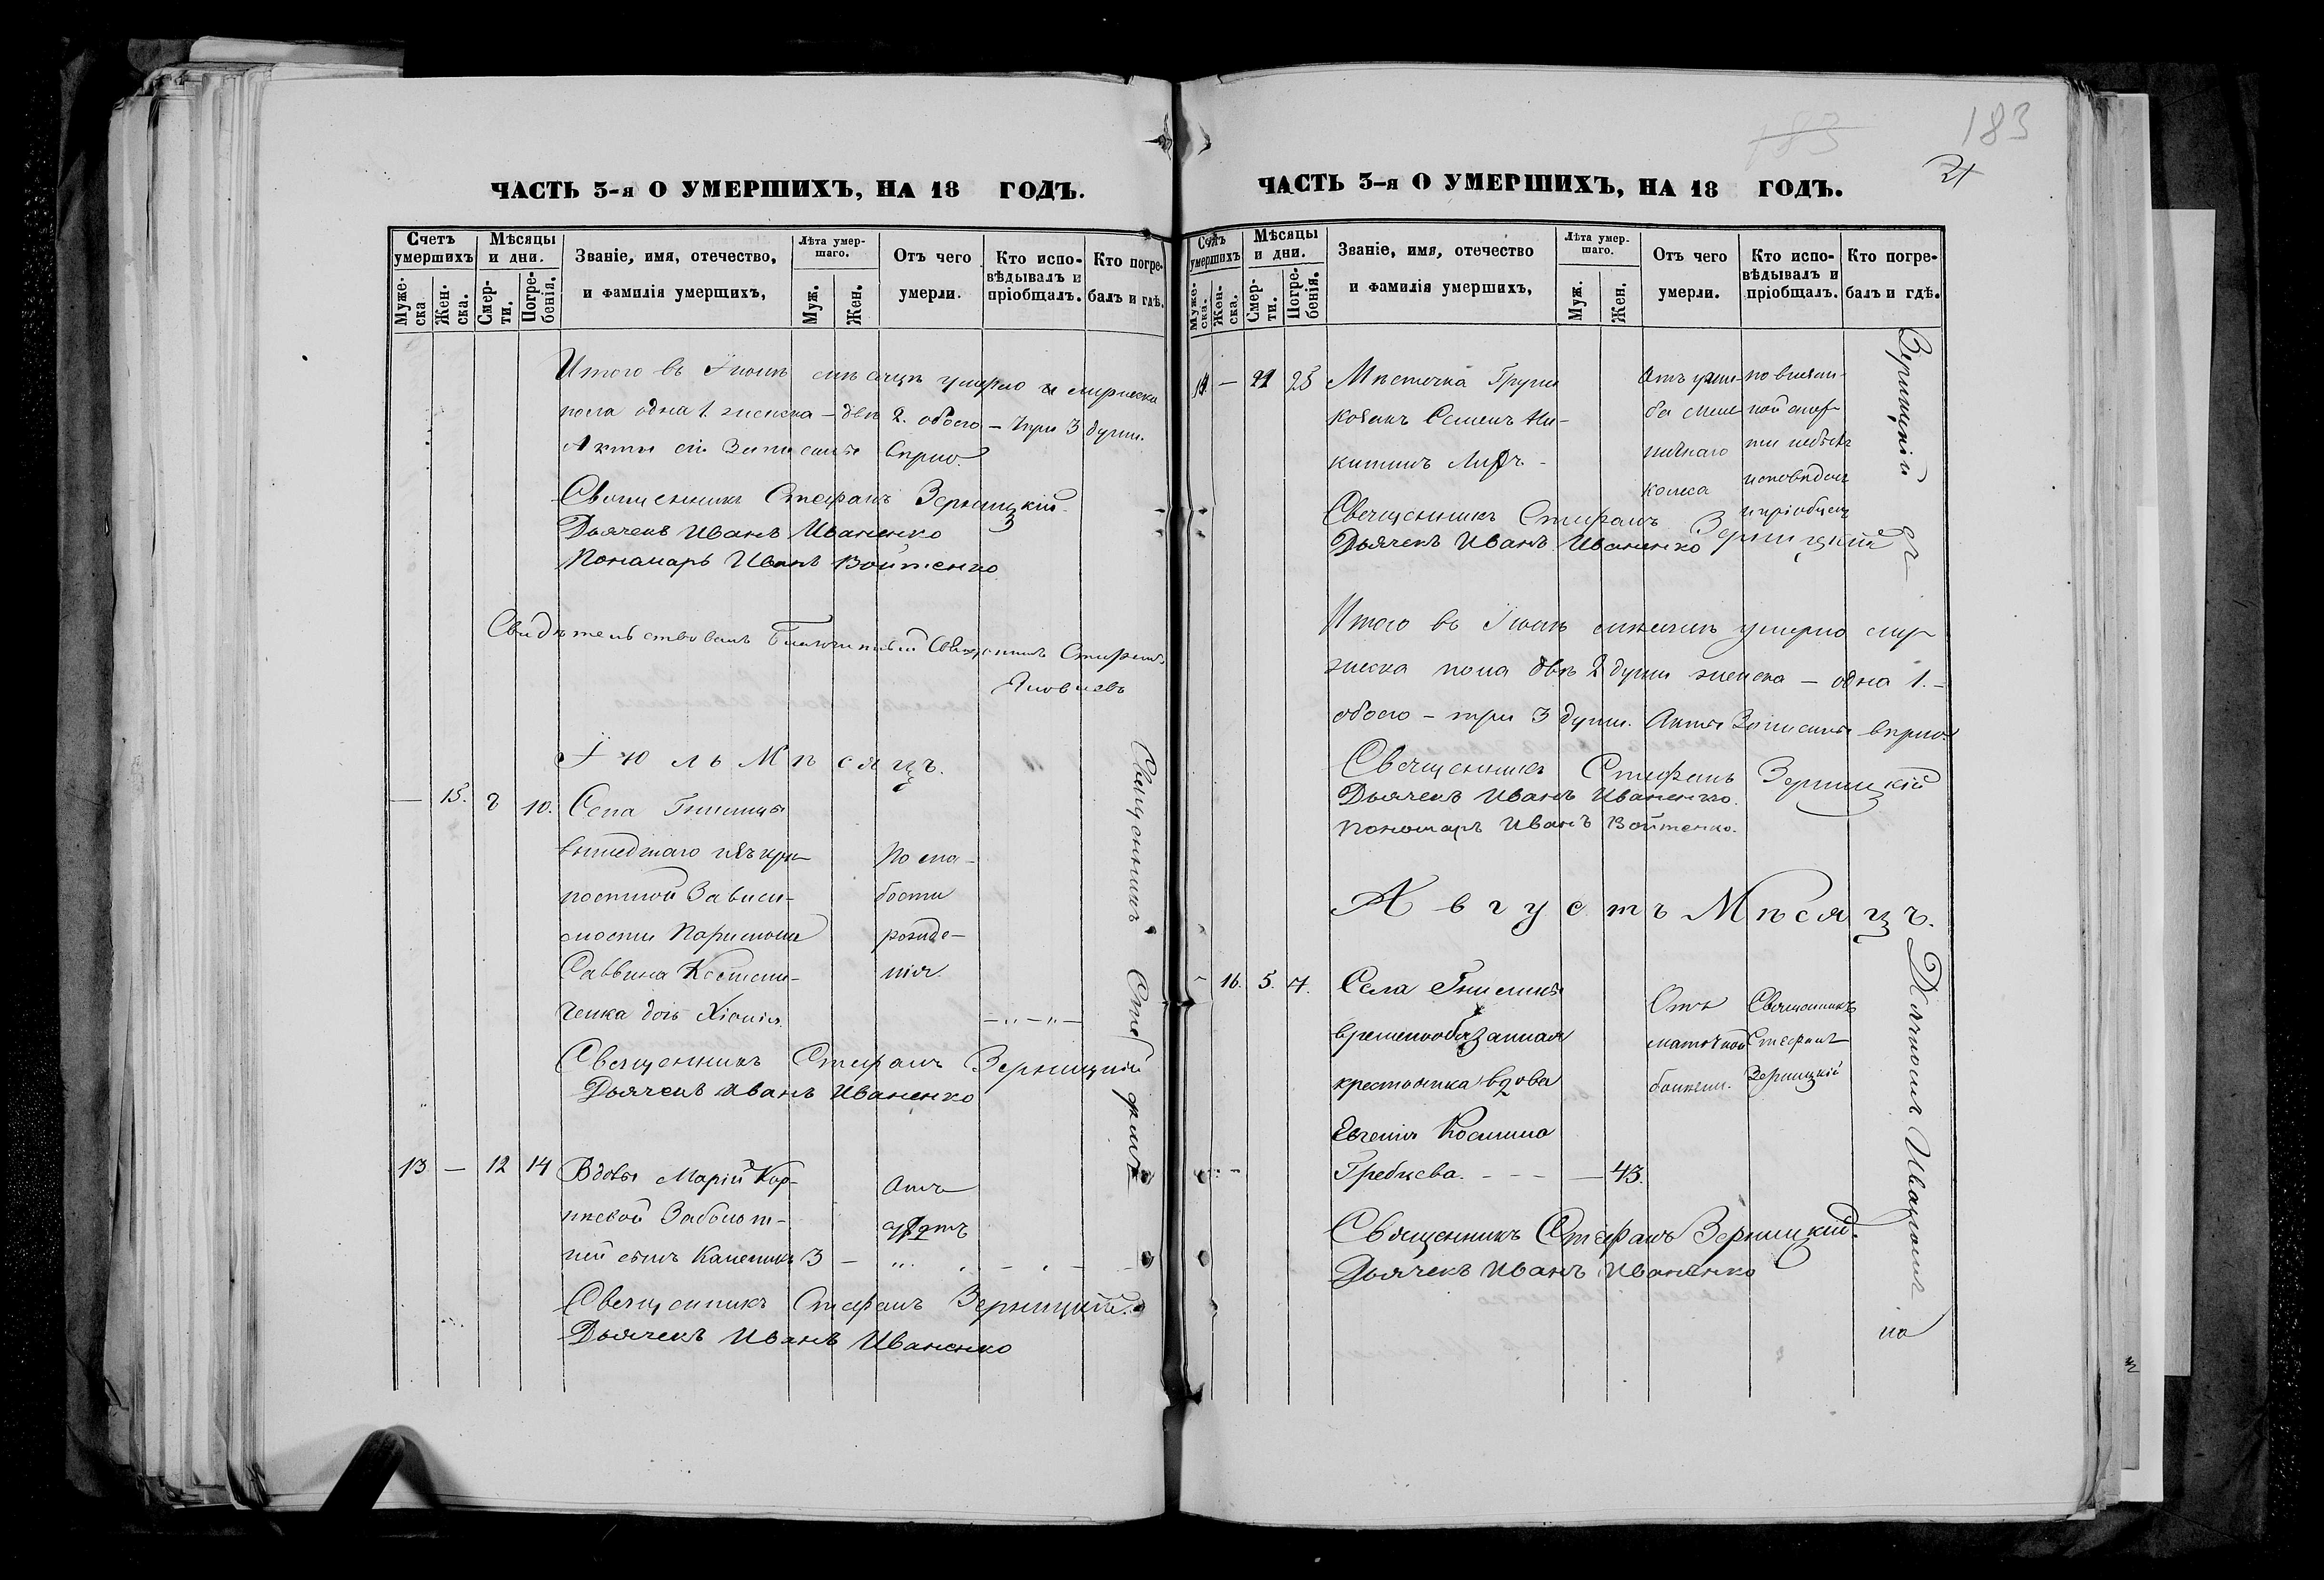 ЧАСТЬ 3-я О УМЕРШИХЪ, НА 18 ГОДЪ.
Счетъ умершихъ
Мѣсяцы и дни.
Званіе, имя, отечество, и фамилія умерщихъ,
Лѣта умершаго.
Отъ чего умерли.
Кто исповѣдывалъ и пріобщалъ.
Кто погребалъ и гдѣ.
Мужеска
Женска.
Смерти.
Погребенія.
Муж.
Жен.
Итого въ Іюнѣ мѣсяцѣ умерло мужеска
пола одна 1. женска – двѣ 2. обоего – три 3 души.
Акты сіи Записаны вѣрно.
Священникъ Стефанъ Зерницкій.
Дьячекъ Иванъ Иваненко
Пономарь Иванъ Войтенко
Свидѣтельствовалъ Благочинный Священникъ Стефанъ
Яковлевъ
Іюль Мѣсяцъ.
— 15. 8 10. Села Гнилицы
вышедшаго изъ крѣ- По сла-
постной Зависи- бости
мости Парѳмона рожде-
Саввина Костени- нія.
ченка дочь Хіонія. — „ — „ —
Священникъ Стефанъ Зерницкій
Дьячекъ Иванъ Иваненко
13 — 12 14 Вдовы Маріи Кор- Отъ
нѣевой Заболот-
ней сынъ Калениkъ 3 — „
Священникъ Стефанъ Зерницкій.
Дьячекъ Иванъ Иваненко
Священникъ Стефанъ
183
183
21
ЧАСТЬ 3-я О УМЕРШИХЪ, НА 18 ГОДЪ.
Счетъ умершихъ
Мѣсяцы и дни.
Званіе, имя, отечество и фамилія умершихъ,
Лѣта умершаго.
Отъ чего умерли.
Кто исповѣдывалъ и пріобщалъ.
Кто погребалъ и гдѣ.
Мужеска.
Женска.
Смерти.
Погребенія.
Муж.
Жен.
14 — 22 25 Мѣстечка Груни Отъ уши- по внезап-
козакъ Семенъ Ни- ба мель- ной смер-
китинъ ничнаго ти небылъ
колеса исповѣданъ
и пріобщенъ
Священникъ Стефанъ Зерницкій
Дьячекъ Иванъ Иваненко
Итого въ Іюлѣ мѣсяцѣ умерло му-
жеска пола двѣ 2 души женска – одна 1. –
обоего – три 3 души. Акты Записаны вѣрно.
Священникъ Стефанъ Зерницкій
Дьячекъ Иванъ Иваненко.
Пономарь Иванъ Войтенко.
Августъ Мѣсяцъ.
– 16. 5. 7. Села Гнилицы Отъ Священникъ
временнообязанная маточной Стефанъ
крестьянка вдова болѣзни. Зерницкій
Евгенія Космина
Гребнева. - - - — 43.
Священникъ Стефанъ Зерницкій.
Дьячекъ Иванъ Иваненко
Зерницкій
съ
Дьячкомъ Иваномъ
на